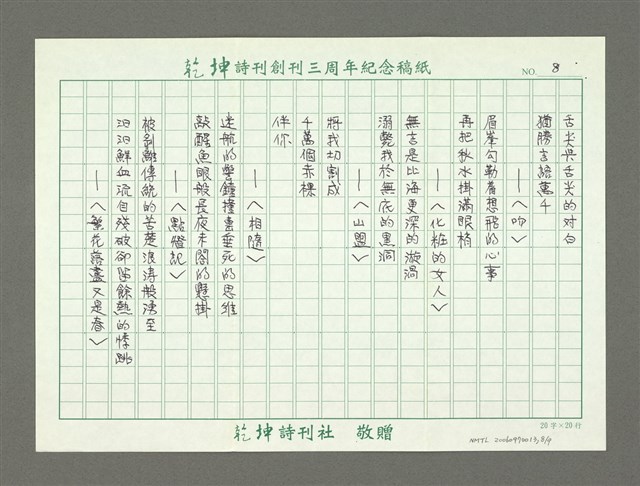 乾坤詩刊創刊三周年紀念稿紙
NO. 8
舌尖與舌尖的对白
猶勝言語萬千
——〈吻〉
眉峯勾勒着想飛的心事
再把秋水掛滿眼梢
——〈化粧的女人〉
無言是比海更深的漩渦
溺斃我於無底的黑洞
——〈山盟〉
將我切割成
千萬個赤裸
伴你
——〈相隨〉
迷航的警鐘撞擊垂死的思維
敲醒魚眼般長夜未闔的懸掛
——〈點燈記〉
被剝離傳統的苦楚浪濤般湧至
汩汩鮮血流自殘破卻留餘熱的悸跳
——〈繁花落盡又是春〉
20字×20行
乾坤詩刊社 敬贈
NMTL 20060490013, 8/9